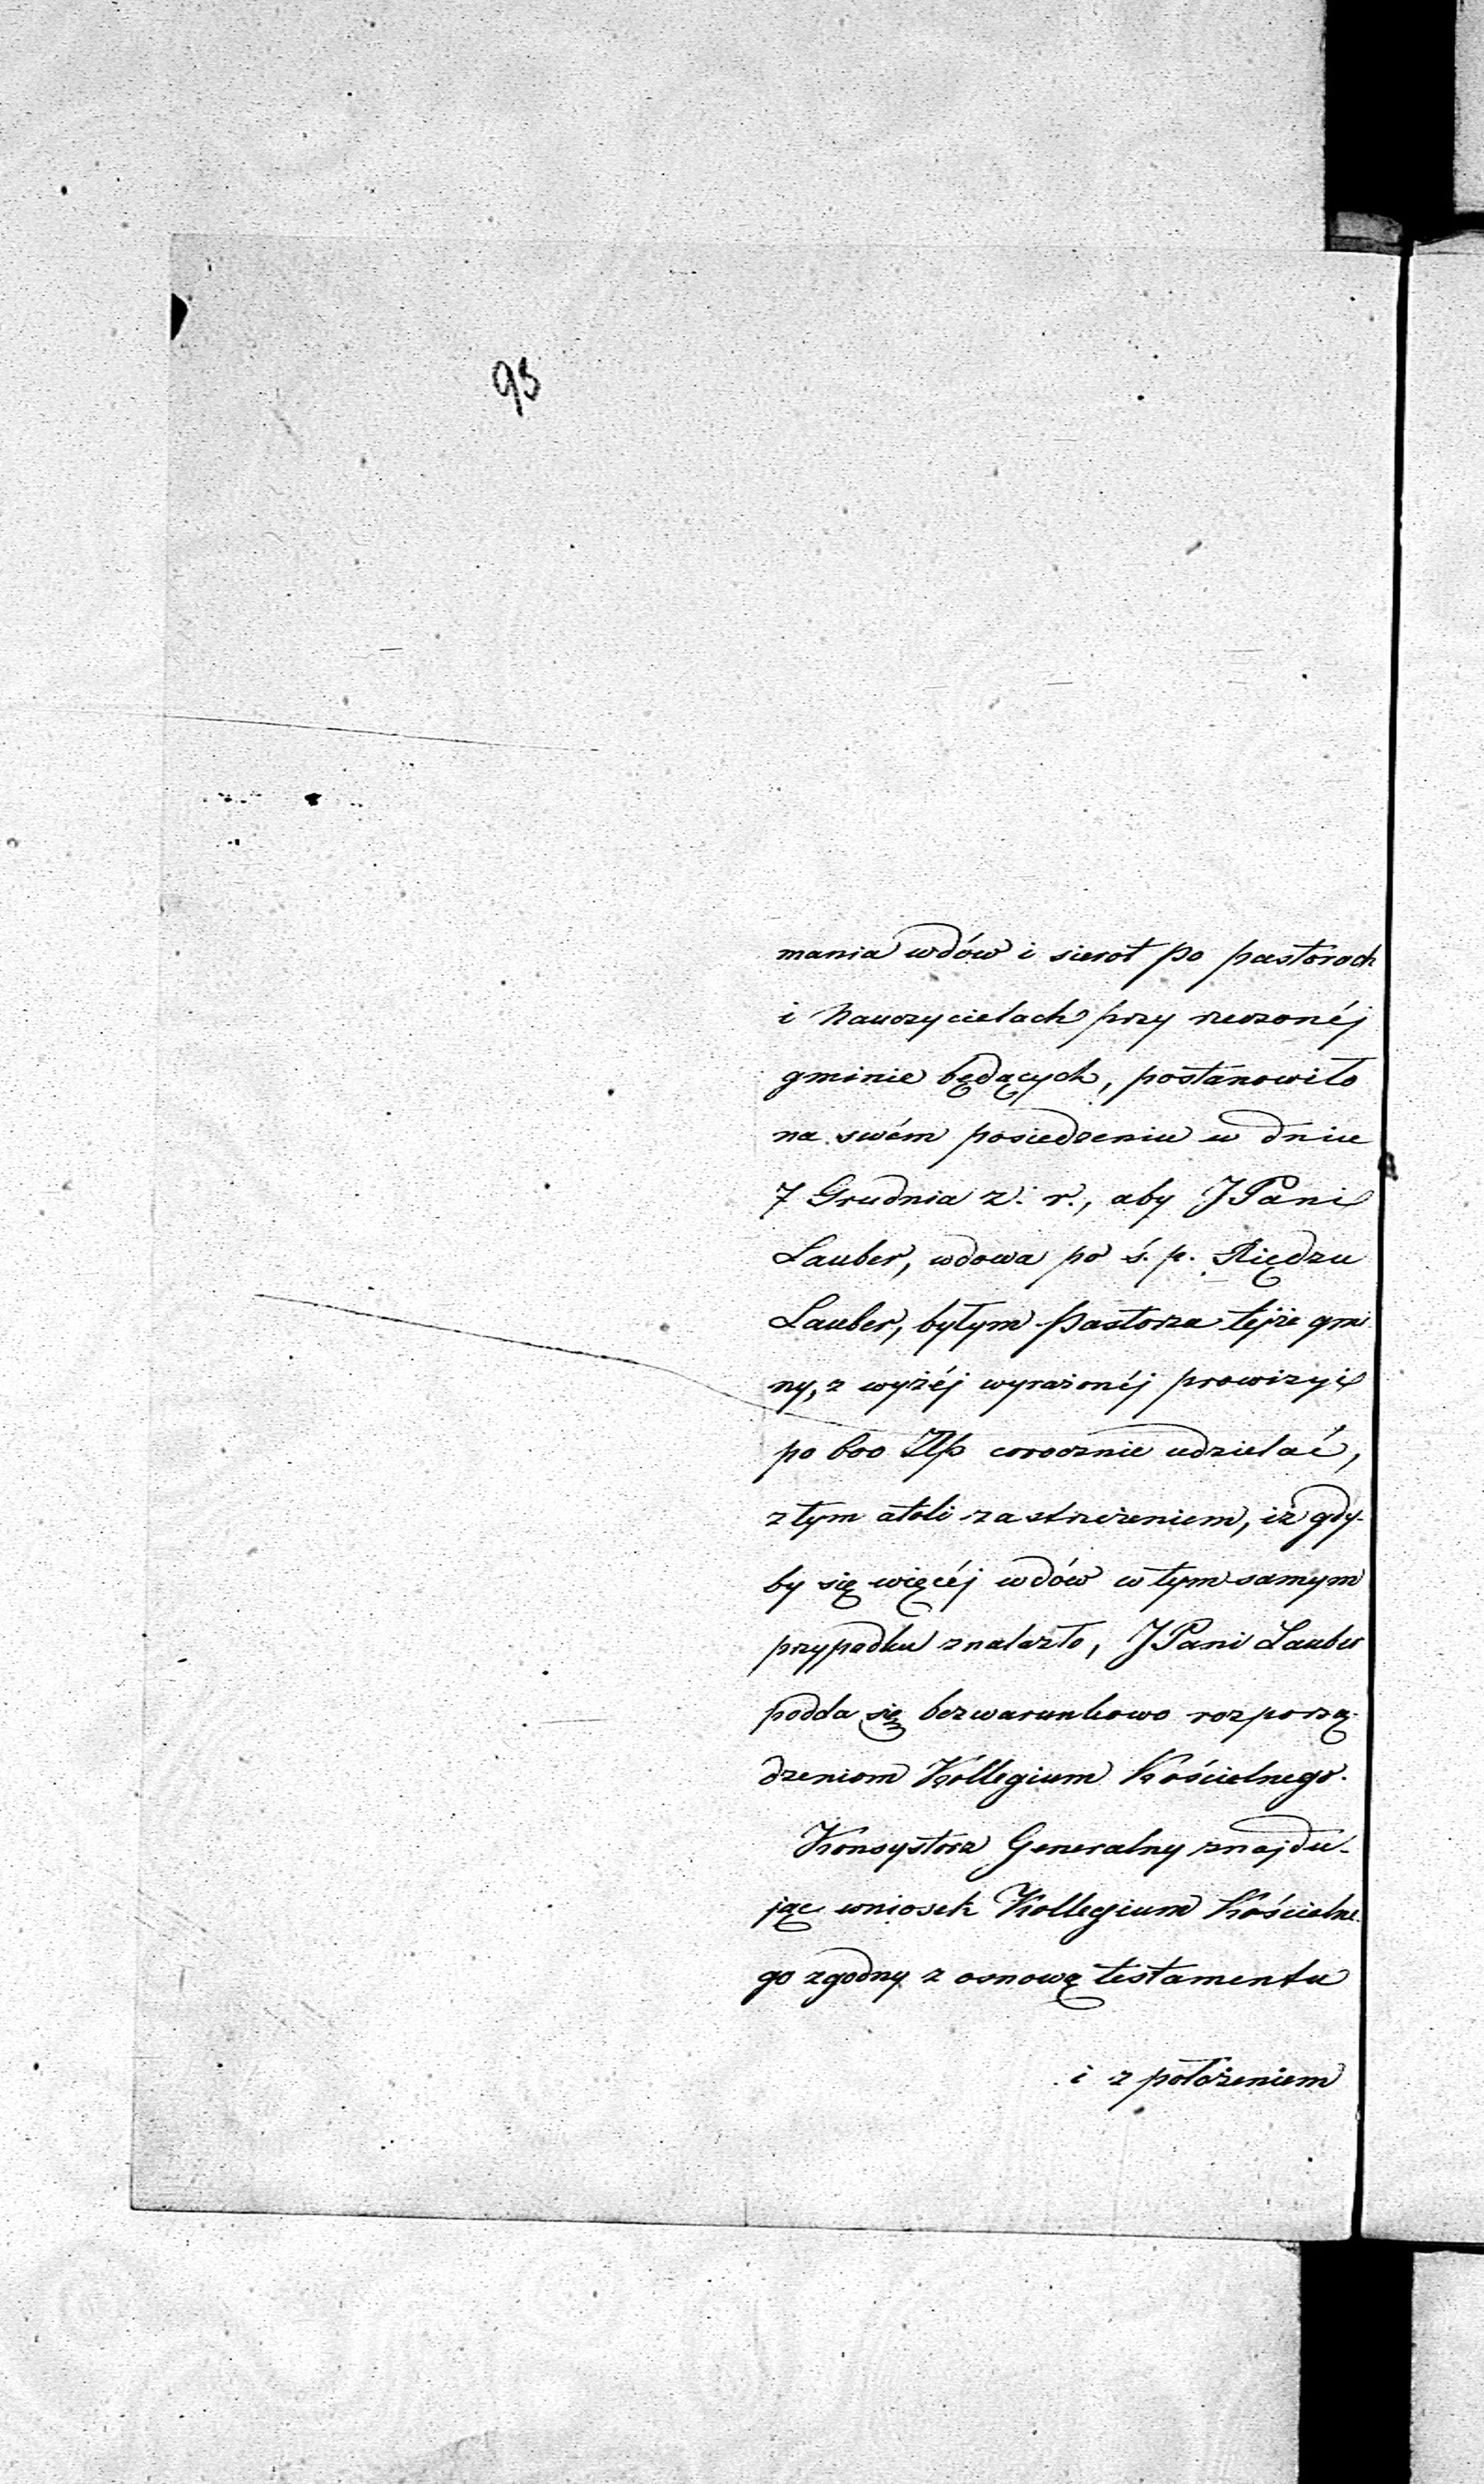 93
mania wdów i sierot po pastorach
i Nauczycielach przy rzeczonéj
gminie będących, postanowiło
na swém posiedzeniu w dniu
7 Grudnia z. r., aby JPani
Lauber, wdowa po ś. p. Księdzu
Lauber, byłym Pastorza tejże gmi
ny, z wyżéj wyrażonéj prowizyi
po 600 Złp corocznie udzielać,
z tym atoli zastrzeżeniem, iż gdy-
by się więcéj wdów w tym samym
przypadku znalazło, JPani Lauber
podda się bezwarunkowo rozporzą-
dzeniom Kollegium Kościelnego.
Konsystorz Generalny znajdu-
jąc wniosek Kollegium Kościelne-
go zgodny z osnową testamentu
i z położeniem